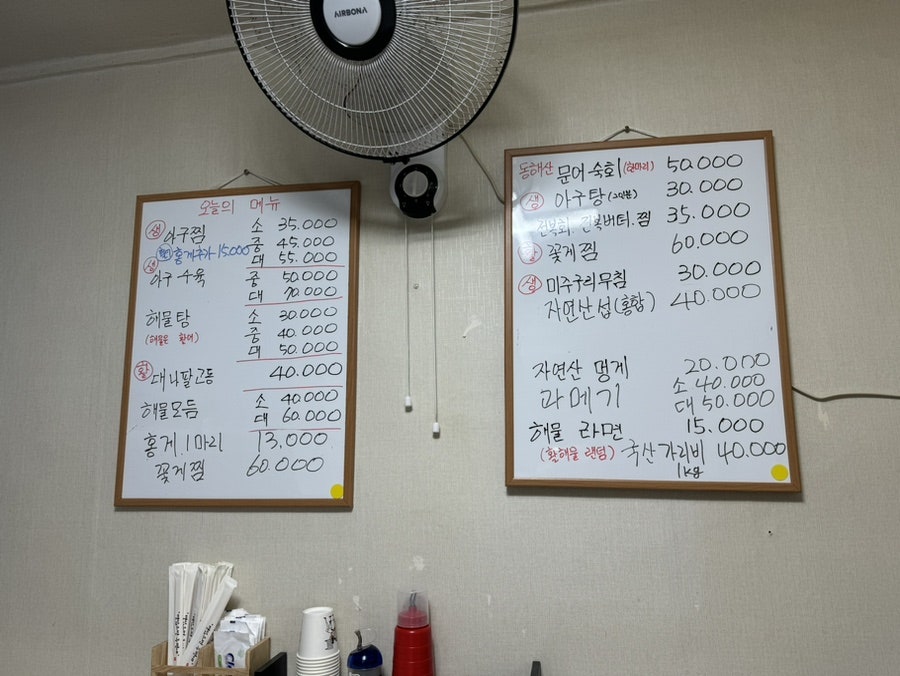 AIRBONA
오늘의 메뉴
생 아구찜 소 35.000
중 45.000
홍게추가 15.000
대 55.000
생 아구수육 중 50.000
대 70.000
해물탕 소 30.000
(해물은 활어) 중 40.000
대 50.000
활 대나팔고동 40.000
해물모듬 소 40.000
대 60.000
홍게 1마리 13.000
꽃게찜 60.000
동해산 문어숙회 (한마리) 50.000
생 아구탕 (2인분) 30.000
전복회. 전복버터.찜 35.000
활 꽃게찜 60.000
생 미주구리무침 30.000
자연산섭(홍합) 40.000
자연산 멍게 20.000
과메기 소 40.000
대 50.000
해물 라면 15.000
(활해물 랜덤) 국산가리비 40.000
1kg